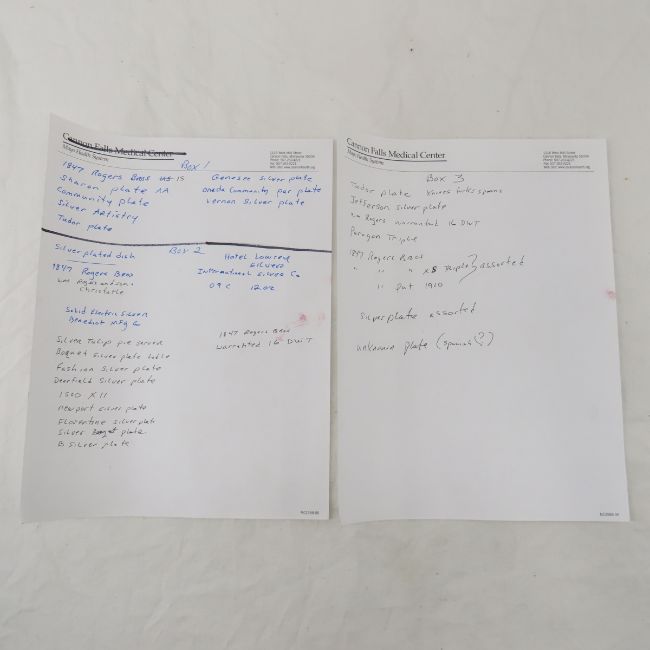 Cannon Falls Medical Center
Mayo Health System
Box 1
1847 Rogers Bros
Sharon plate AA
Community plate
Silver Artistry
Tudor plate
Genesee Silver plate
Oneida Community par plate
Vernon Silver plate
Box 2
Silver plated dish
1847 Rogers Bros
Wm Rogers and son
Christofle
Solid Electric Silver
Benedict Mfg Co
Silver Tulip pie server
Boquet Silver plate table
Fashion Silver plate
Deerfield Silver plate
1500 X II
Newport silver plate
Florentine silver plate
Silver plate
B Silver plate
Hotel
Silver
International Silver Co
09 C 12 oz
1847 Rogers Bros
Warranted 16 DWT
Cannon Falls Medical Center
Mayo Health System
Box 3
Tudor plate Knives forks spoons
Jefferson Silver plate
Wm Rogers warranted 16 DWT
Paragon Triple
1847 Rogers Bros
" " " XS Triple } assorted
" " Pat 1910
Silverplate assorted
unknown plate (spanish?)